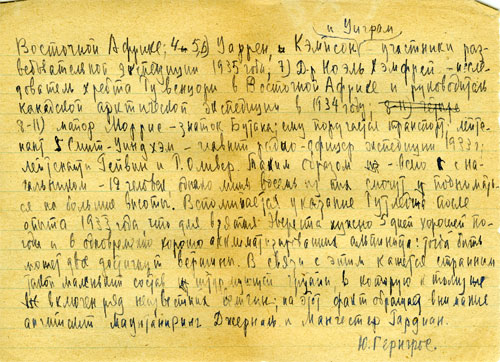 и Уиграм
Восточной Африке; 4, 5, 6) Уаррен, Кэмпсон участники раз-
ведывательной экспедиции 1935 года; 7) Д-р Ноэль Хэмфрей - иссле-
дователь хребта Рувензори в Восточной Африке и руководитель
канадской арктической экспедиции в 1934 году; 8-11)
8-11) майор Моррис - знаток Бутана, ему поручается транспорт; лейте-
нант Смит-Уиндхэм - главный радио-офицер экспедиции 1933 г;
лейтенанты Гевин и Р. Оливер. Таким образом - всего с на-
чальником - 12 человек, однако лишь восемь из них смогут подымать-
ся на большие высоты. Вспоминается указание Рутледжа после
опыта 1933 года, что для взятия Эвереста нужно 5 дней хорошей по-
годы и 8 хорошо акклиматизированных альпинистов: тогда быть
может два достигнут вершины. В связи с этим кажется странным
такой маленький состав штурмующей группы, в которую к тому же
не включен ряд известных ; на этот факт обращают внимание
английский Маунтаниринг Джорналь и Манчестер Гардиан.
Ю. Гернгрос.